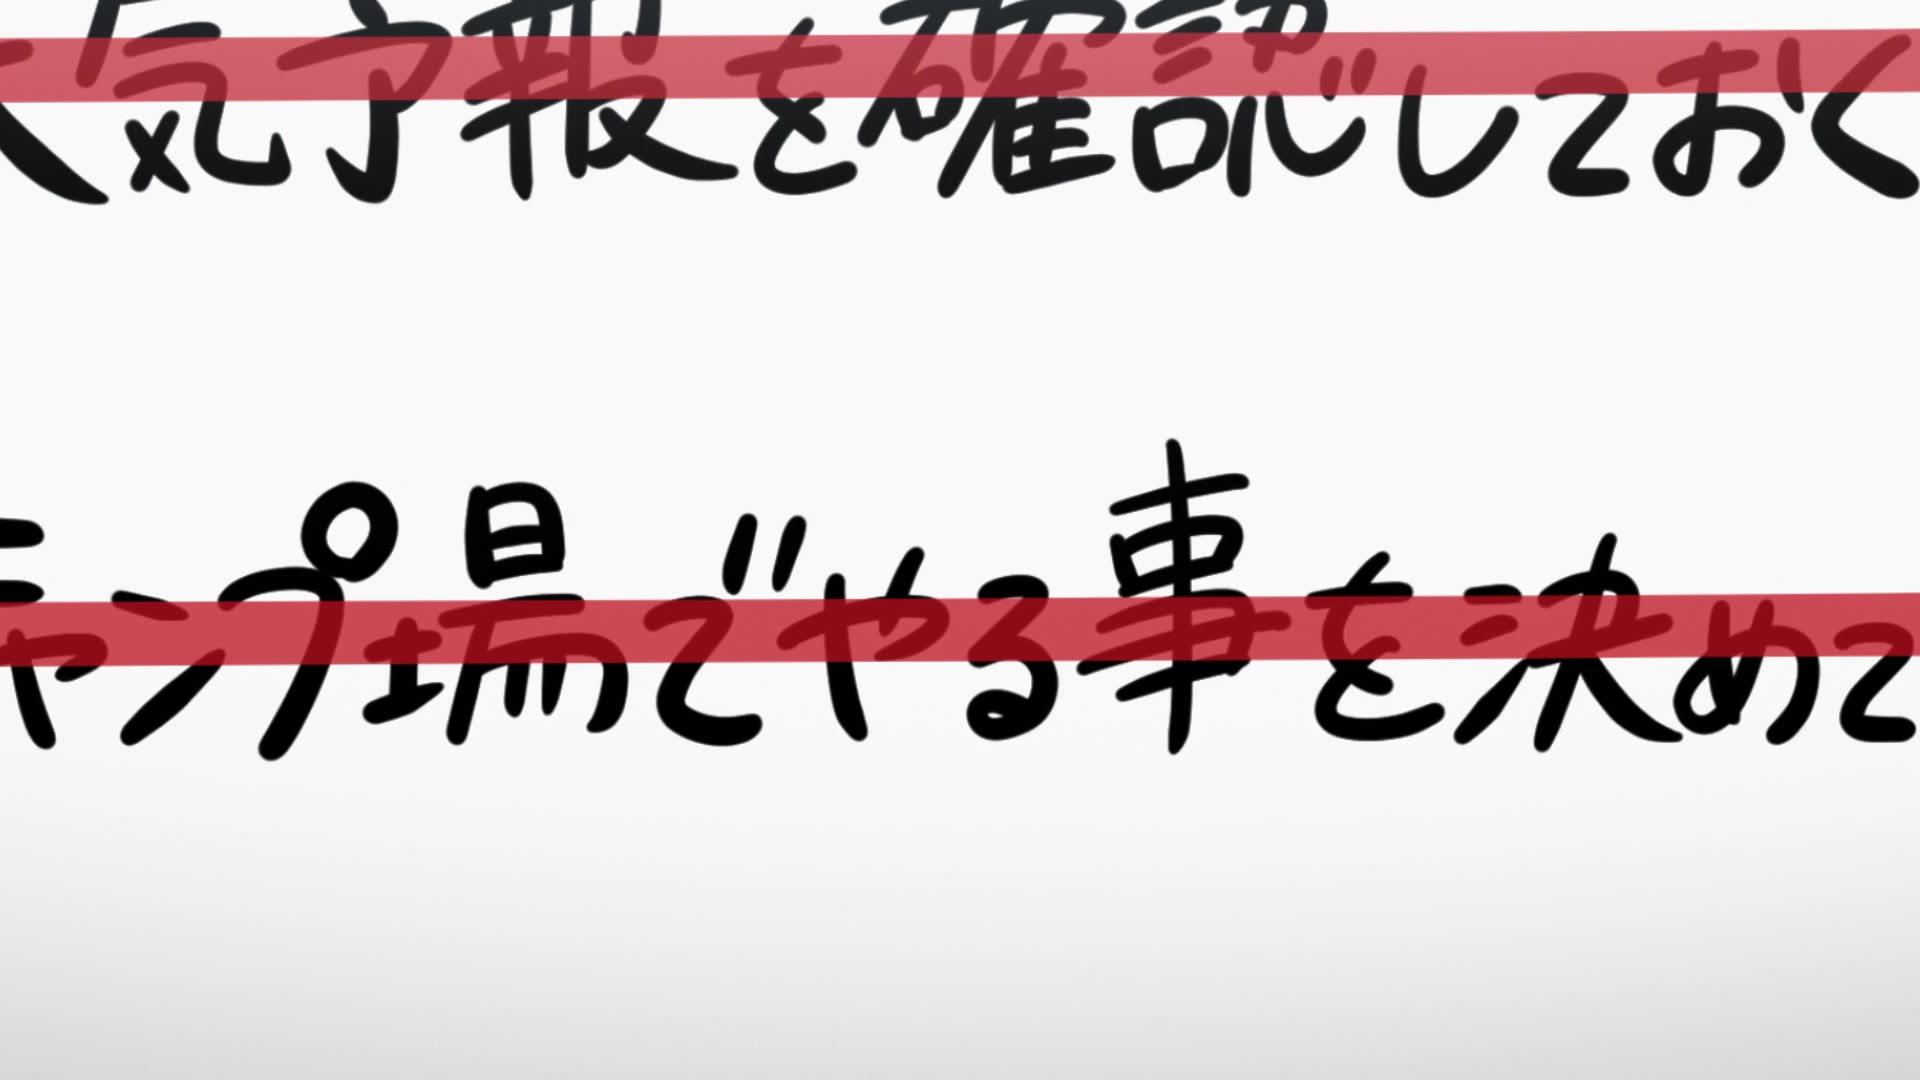 天気予報を確認しておく
キャンプ場でやる事を決めて